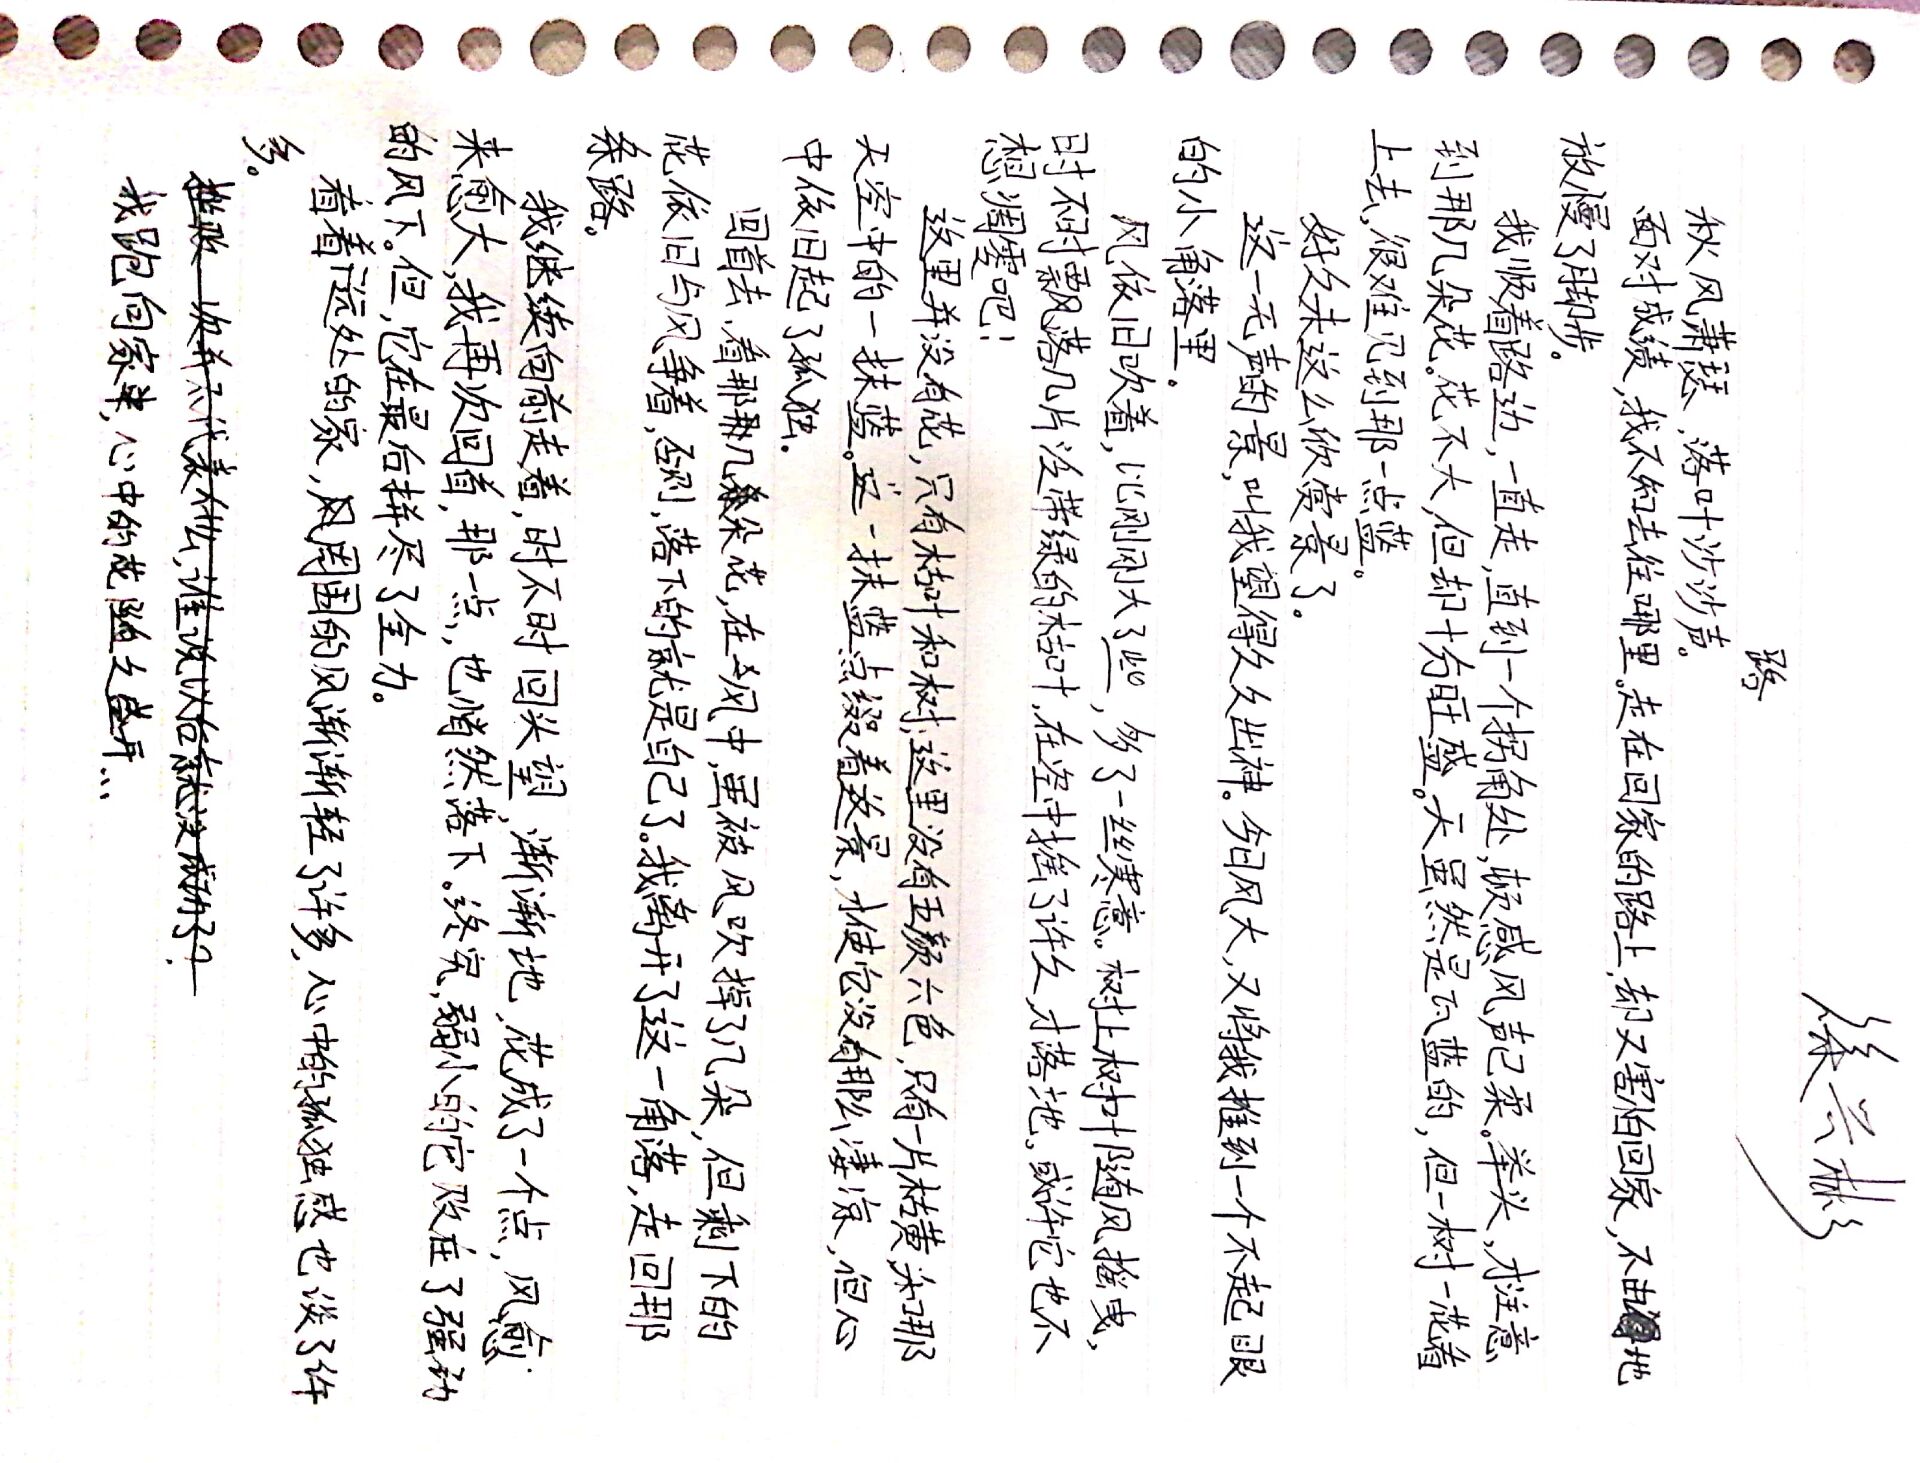 徐兴彬
路
秋风萧瑟，落叶沙沙声。
面对成绩，我不知去往哪里。走在回家的路上，却又害怕回家，不由地
放慢了脚步。
我顺着路边，一直走，直到一个拐角处，顿感风声已柔。举头，才注意
到那几朵花。花不大，但却十分旺盛。天虽然是瓦蓝的，但一树一花着
上去，很难见到那一点蓝。
好久未这么欣赏景了。
这一无声的景，叫我望得久久出神。今日风大，又将我推到一个不起眼
的小角落里。
风依旧吹着，比刚刚大了些，多了一丝寒意。树上树叶随风摇曳，
时不时飘落几片泛带绿的枯叶，在空中摇了许久，才落地。或许它也不
想凋零吧！
这里并没有花，只有枯叶和树，这里没有五颜六色，只有一片枯黄，和那
天空中的一抹蓝。这一抹蓝点缀着这景，才使它没有那么凄凉，但心
中依旧起了孤独。
回首去，看那那几朵花，在风中，虽被风吹掉了几朵，但剩下的
花依旧与风争着，否则，落下的就是自己了。我离开了这一角落，走回那
条路。
我继续向前走着，时不时回头望，渐渐地，花成了一个点，风愈
来愈大，我再次回首，那一点，也悄然落下。终究，弱小的它败在了强劲
的风下。但，它在最后拼尽了全力。
看着远处的家，风周围的风渐渐轻了许多，心中的孤独感也淡了许
多。
一次并不代表什么，谁说以后就没成功了？
我跑向家，心中的花随之盛开…